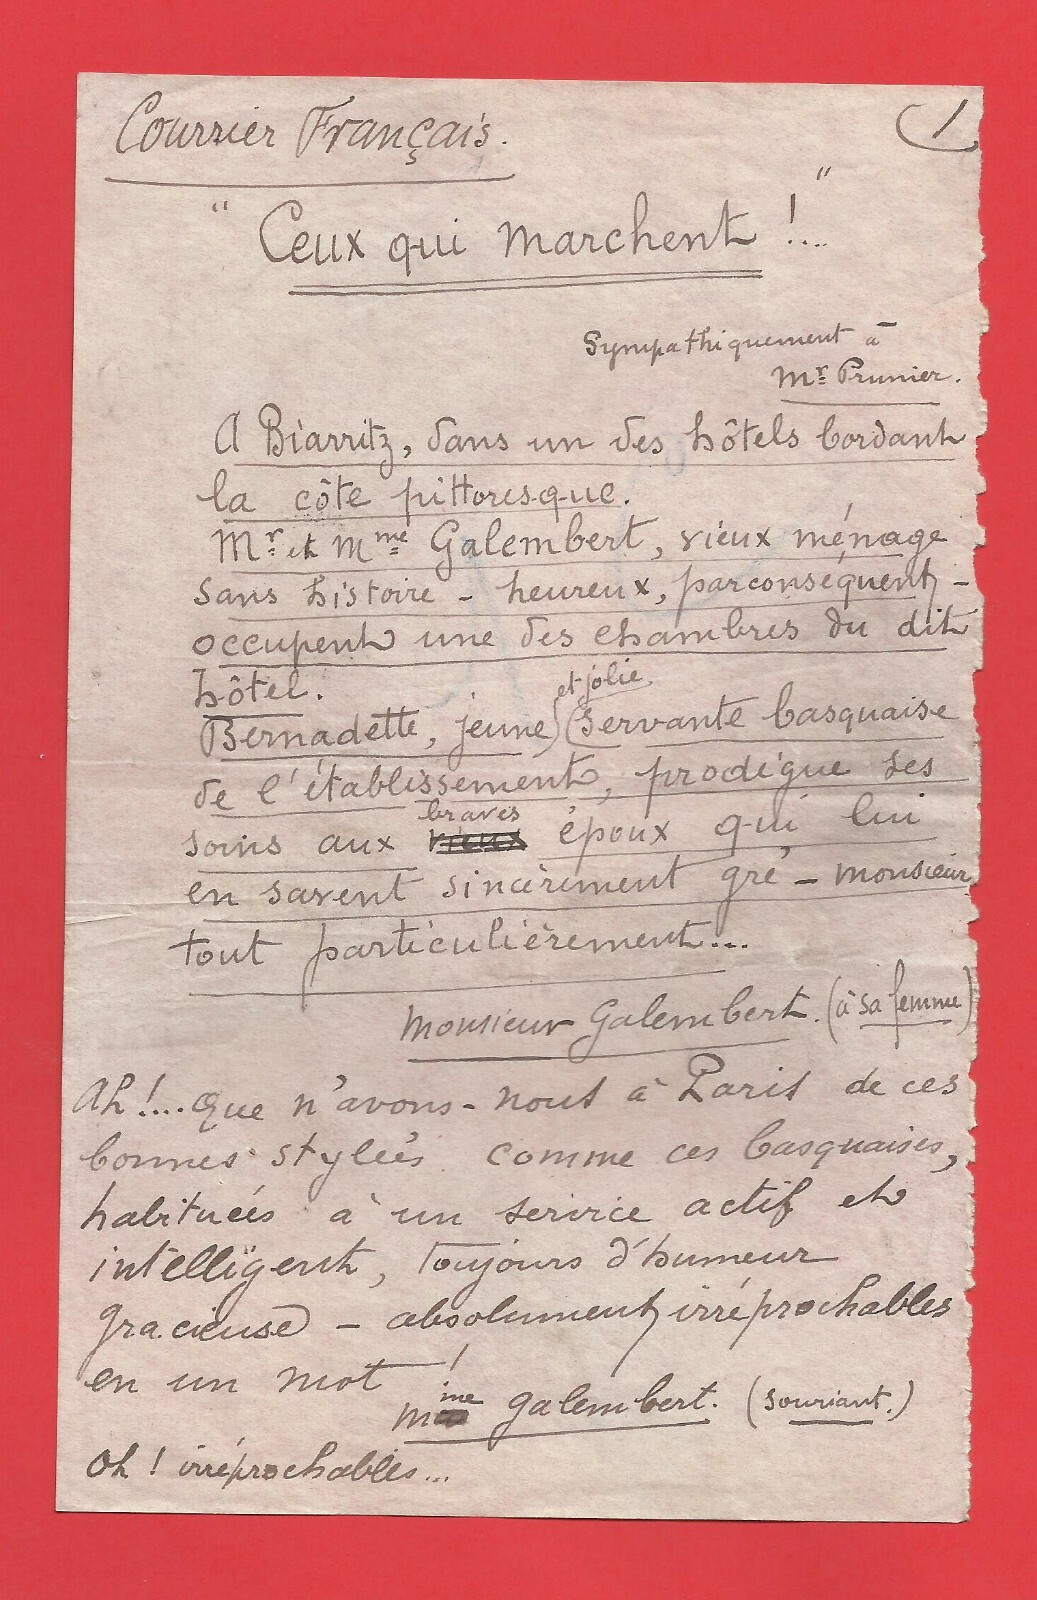 Courrier Français.
1
" Ceux qui marchent !... "
Sympathiquement à
Mr Prunier.
A Biarritz, dans un des hôtels bordant
la côte pittoresque.
Mr et Mme Galembert, vieux ménage
sans histoire - heureux, parconséquent -
occupent une des chambres du dit
hôtel.
et jolie
Bernadette, jeune (servante basquaise
de l'établissement, prodigue ses
braves
soins aux vieux époux qui lui
en savent sincèrement gré - monsieur
tout particulièrement...
Monsieur Galembert. (à sa femme)
Ah !.... que n'avons-nous à Paris de ces
bonnes stylées comme ces basquaises,
habituées à un service actif et
intelligent, toujours d'humeur
gracieuse - absolument irréprochables
en un mot !
Mme Galembert. (souriant.)
Oh ! irréprochables...